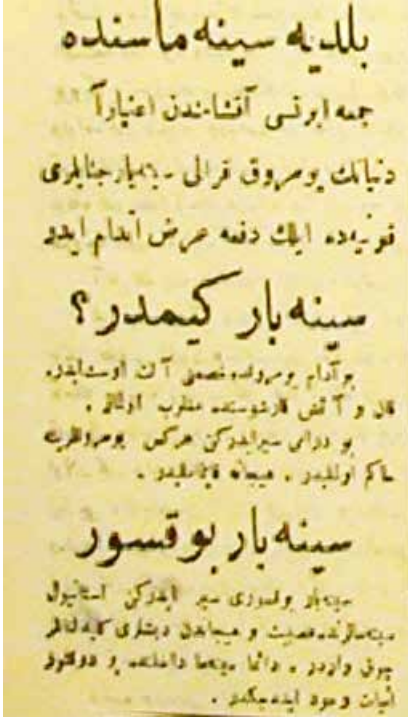 بلديه سينه ماسنده
جمعه ايرتسى آقشامندن اعتباراً
دنيانك يومروق قرالى ـ سينه‌بار جنابلرى
قونيه‌ده ايلك دفعه عرض اندام ايدر
سينه بار كيمدر؟
بو آدام يومروقده خصمى آلت اوست ايدر.
قان و آتش قارشوسنده مغلوب اولماز.
بو درامى سير ايدركن هركس يومروقلرينه
حاكم اولمليدر. هيجانه قاپلمامليدر.
سينه بار بوقسور
سينه‌بار بوقسورى سير ايدركن استانبول
سينمالرنده عصبيت و هيجاندن ديشلرى
چوق واردر. دائما سينما داخلنده بر دوقتور
اثبات وجود ايده‌جكدر.